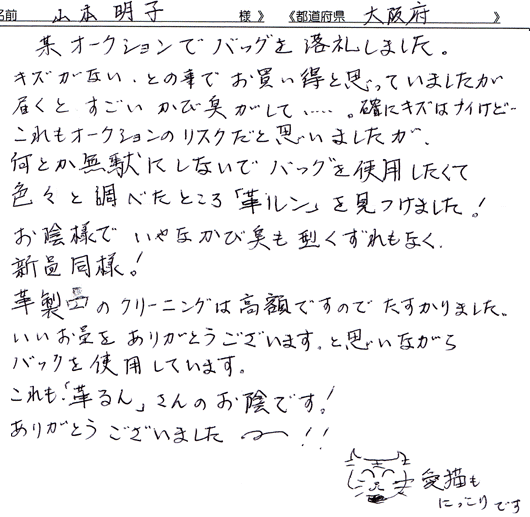 名前 山本 明子 様》 《都道府県 大阪府 》
某オークションでバッグを落札しました。
キズがない、との事でお買い得と思っていましたが
届くとすごいかび臭がして……。確にキズはナイけどー
これもオークションのリスクだと思いましたが、
何とか無駄にしないでバッグを使用したくて
色々と調べたところ「革ルン」を見つけました!
お陰様でいやなかび臭も型くずれもなく、
新品同様!
革製品のクリーニングは高額ですのでたすかりました。
いいお品をありがとうございます。と思いながら
バックを使用しています。
これも「革るん」さんのお陰です!
ありがとうございました〜!!
愛猫も
にっこりです